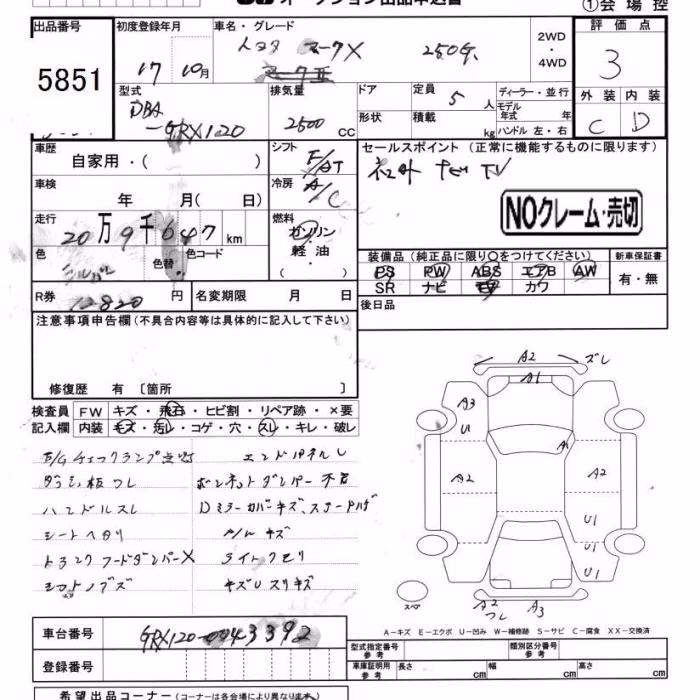 ①会場控
出品番号
5851
初度登録年月
17 10月
車名・グレード
トヨタ マークX 250G
2WD
・
4WD
評価点
3
外装 内装
C D
型式
DBA
-GRX120
排気量
2500 cc
ドア
形状
定員 5 人
積載 kg
ディーラー・並行
モデル年式 年
ハンドル 左・右
車歴
自家用・( )
シフト
F/AT
冷房
A/C
セールスポイント(正常に機能するものに限ります)
社外ナビTV
NOクレーム・売切
車検
年 月( 日)
走行
20万9千647 km
燃料
ガソリン
・
軽油
・
( )
色
シルバー
色替
色コード
装備品(純正品に限り○をつけてください)
PS PW ABS エアB AW
SR ナビ TV カワ
新車保証書
有・無
R券 12820 円
名変期限 月 日
後日品
注意事項申告欄(不具合内容等は具体的に記入して下さい)
修復歴 有〔箇所 〕
検査員 FW キズ・飛石・ヒビ割・リペア跡・×要
記入欄 内装 キズ・汚レ・コゲ・穴・スレ・キレ・破レ
E/Gチェックランプ点灯
ダッシュ板ワレ
ボンネットダンパー不良
ハンドルスレ
Dミラーカバーキズ、ステーハゲ
シートヘタリ
A/Wキズ
トランクフードダンパーX
ライトクモリ
シフトノブキズ
キズUスリキズ
A2 ズレ
A1
A3
U
A1
A2
A2
U1
U1
U1
スペア
A2
ワレ
A3
A-キズ E-エクボ U-凹み W-補修跡 S-サビ C-腐食 XX-交換済
車台番号 GRX120-0043392
登録番号
型式指定番号
参考
類別区分番号
参考
車庫証明用
参考
長さ cm
幅 cm
高さ cm
希望出品コーナー(コーナーは各会場により異なります)